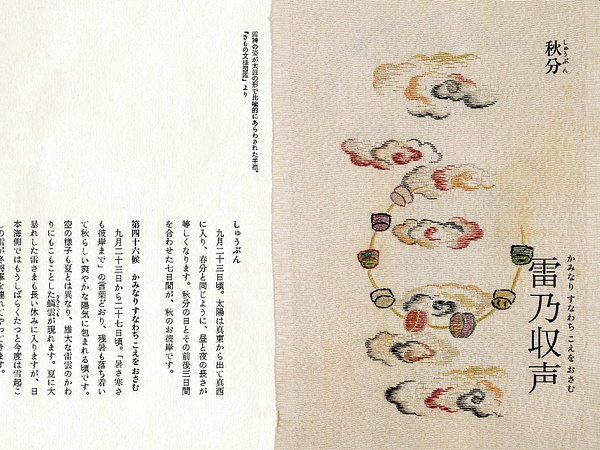 しゅうぶん
秋分
かみなり すなわち こえを おさむ
雷乃収声
雷神の姿が太鼓の形で比喩的にあらわされた半襟。
『きもの文様図鑑』より
しゅうぶん
九月二十三日頃。太陽は真東から出て真西
に入り、春分と同じように、昼と夜の長さが
等しくなります。秋分の日とその前後三日間
を合わせた七日間が、秋のお彼岸です。
第四十六候 かみなり すなわち こえを おさむ
九月二十三日から二十七日頃。「暑さ寒さ
も彼岸まで」の言葉どおり、残暑も落ち着い
て秋らしい爽やかな陽気に包まれる頃です。
空の様子も夏とは異なり、雄大な雷雲のかわ
りにもこもことした鱗雲が現れます。夏に大
暴れした雷さまも長い休みに入りますが、日
本海側ではもうしばらくたつと今度は雪起こ